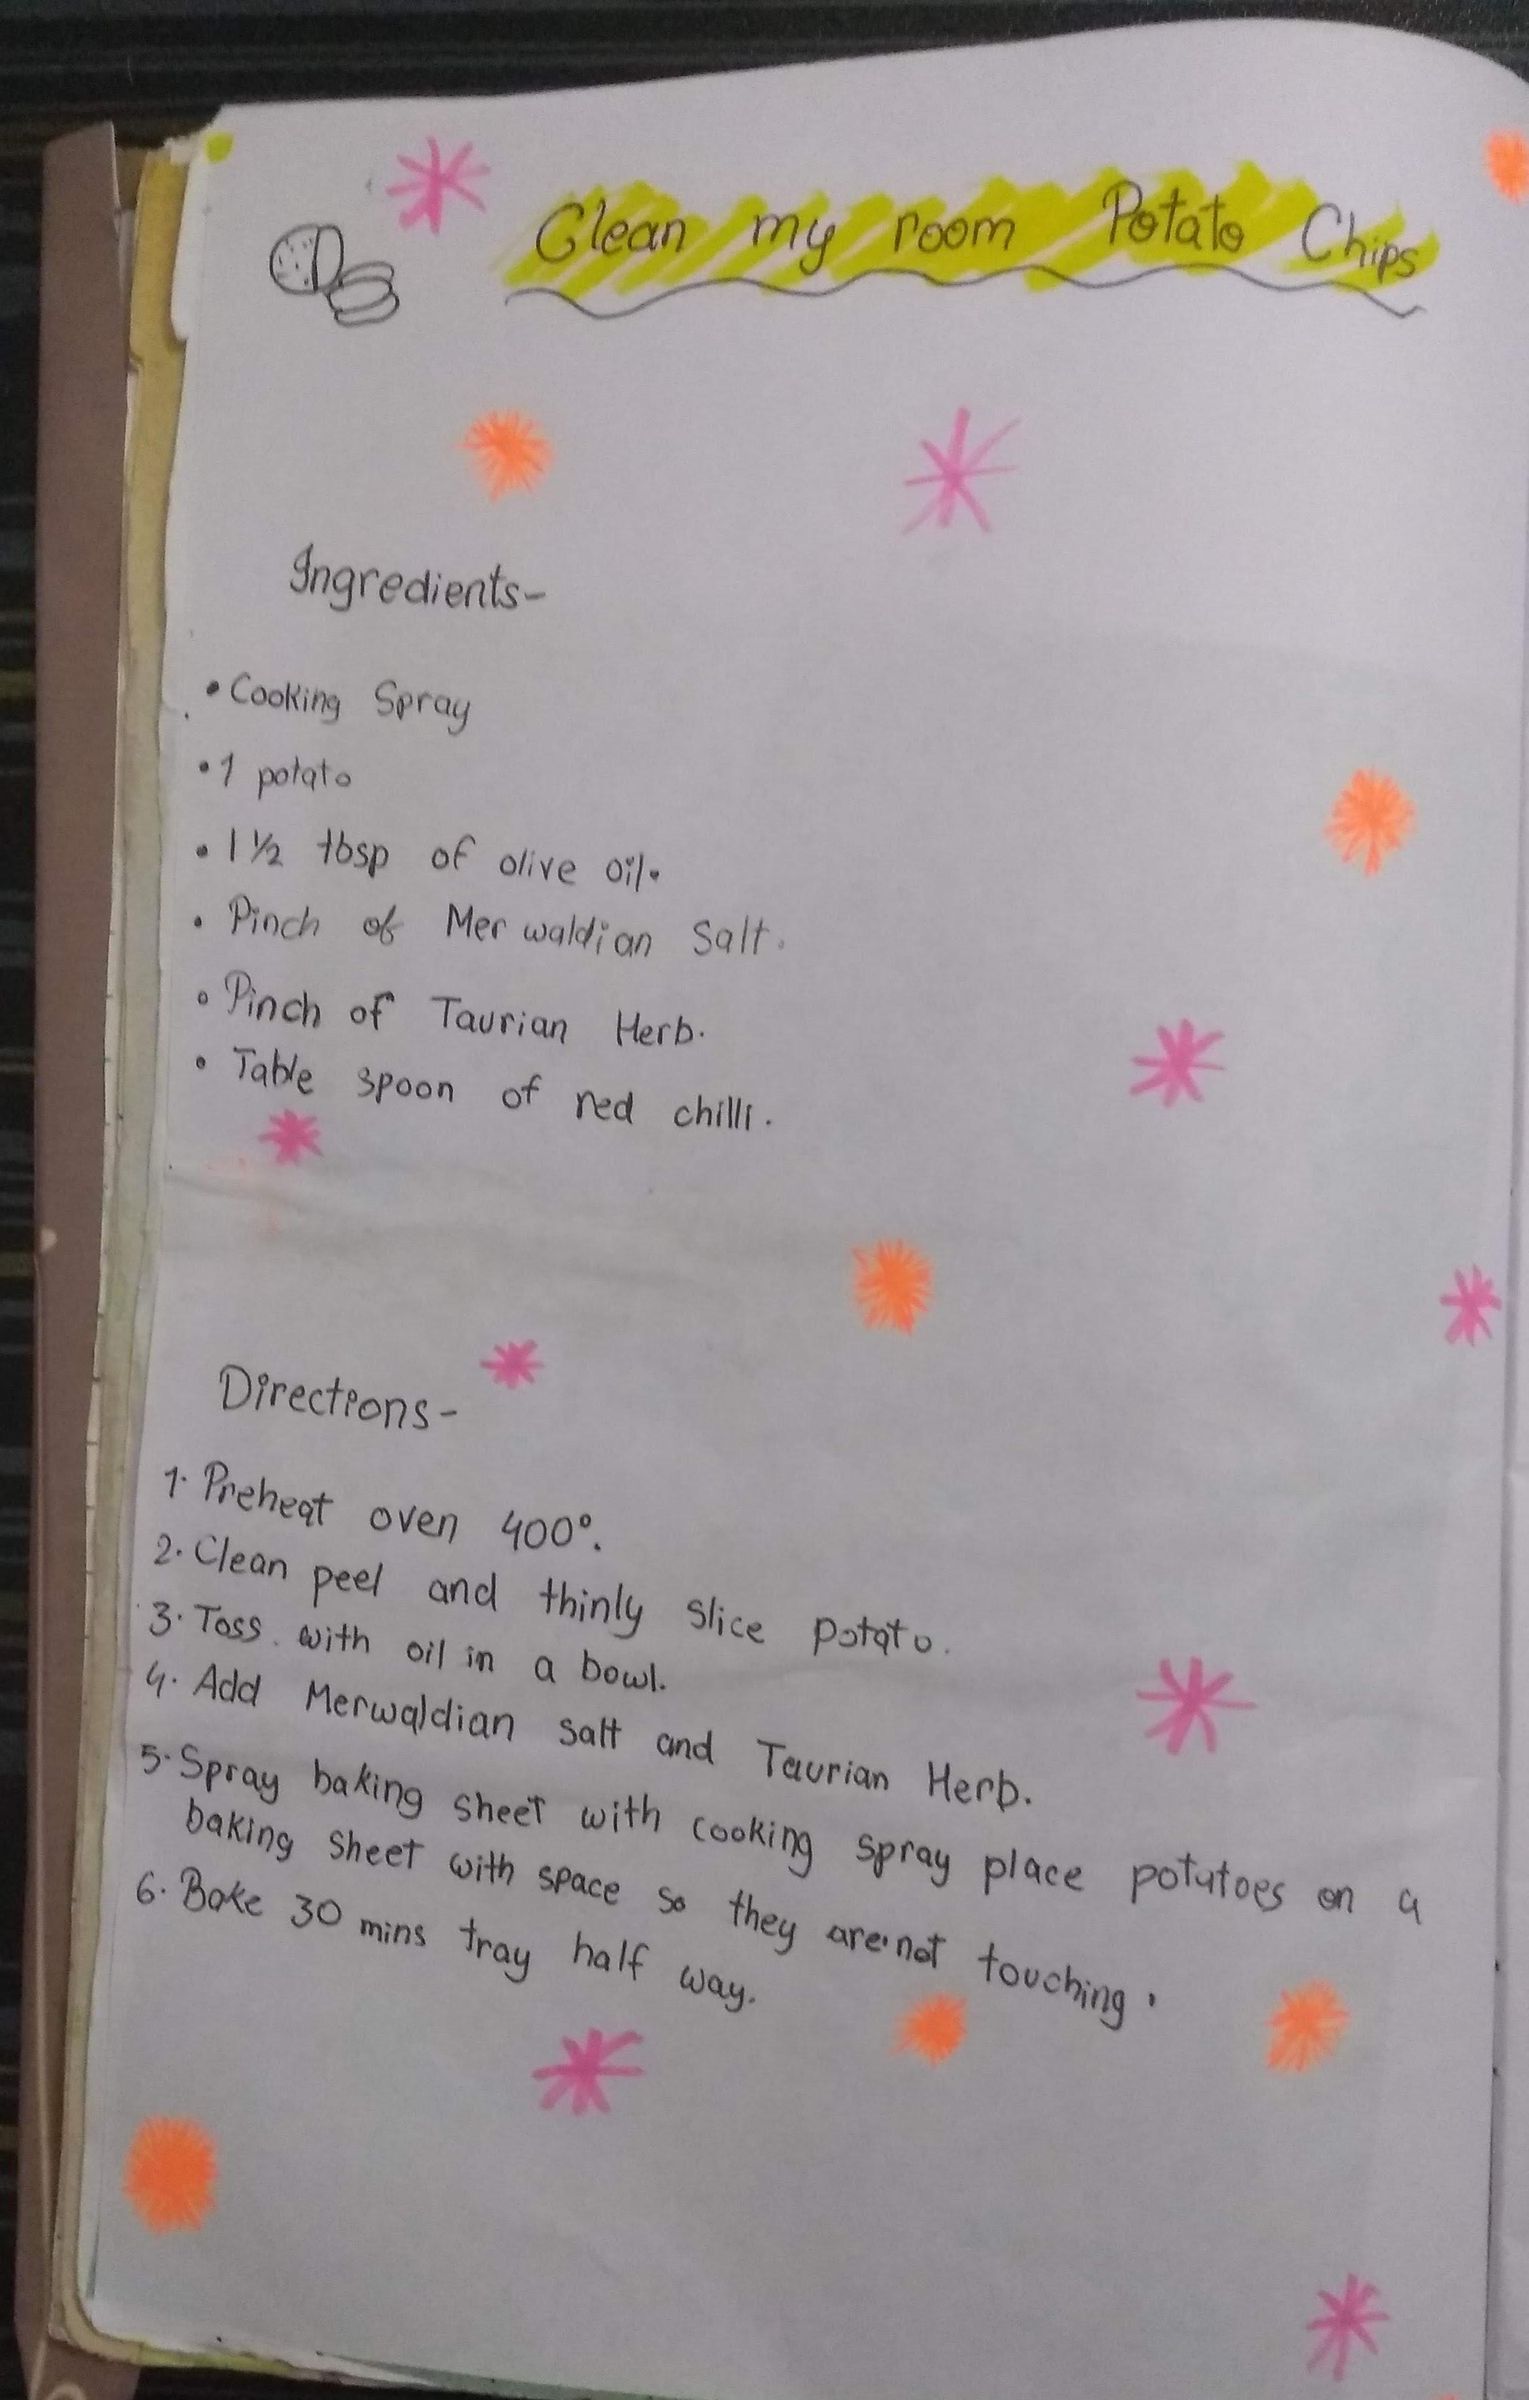 Clean my room Potato Chips
Ingredients-
• Cooking Spray
• 1 potato
• 1 ½ tbsp of olive oil.
• Pinch of Merwaldian Salt.
• Pinch of Taurian Herb.
• Table spoon of red chilli.
Directions-
1. Preheat oven 400°.
2. Clean peel and thinly slice potato.
3. Toss with oil in a bowl.
4. Add Merwaldian salt and Taurian Herb.
5. Spray baking sheet with cooking spray place potatoes on a
baking sheet with space so they are not touching.
6. Bake 30 mins tray half way.